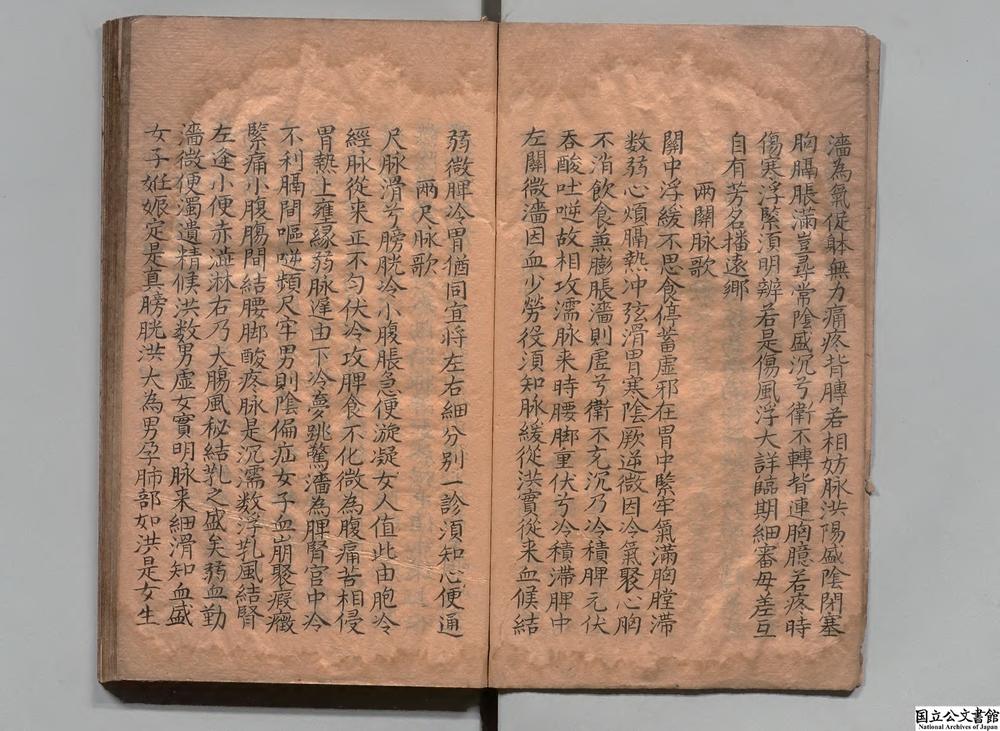 濇為氣促躰無力痛疼背膊若相妨脉洪陽盛陰閉塞
胸膈脹滿豈尋常陰盛沉兮衛不轉背連胸臆若疼時
傷寒浮緊須明辨若是傷風浮大詳臨期細審毋差互
自有芳名播遠鄉
兩關脉歌
關中浮緩不思食停蓄虛邪在胃中緊牢氣滿胸膛滯
数弱心煩膈熱冲弦滑胃寒陰厥逆微因冷氣聚心胸
不消飲食兼膨脹濇則虛兮衛不充沉乃冷積脾元伏
吞酸吐唑故相攻濡脉来時腰脚重伏兮冷積滯脾中
左關微濇因血少勞役須知脉緩從洪實從来血候結
弱微脾冷胃猶同宜将左右細分别一診須知心便通
兩尺脉歌
尺脉滑兮膀胱冷小腹脹急便漩凝女人值此由胞冷
經脉從来正不匀伏冷攻脾食不化微為腹痛苦相侵
胃熱上壅緣弱脉遲由下冷夢跳驚濇為脾腎官中冷
不利膈間嘔唑頻尺牢男則陰偏症女子血崩聚瘕癥
緊痛小腹腸間結腰脚酸疼脉是沉濡数浮乳風結腎
左逢小便赤澁淋右乃大腸風秘結乳之盛矣弱血勤
濇微便濁遺精候洪数男虛女實明脉来細滑知血盛
女子姙娠定是真膀胱洪大為男孕肺部如洪是女生
国立公文書館
National Archives of Japan